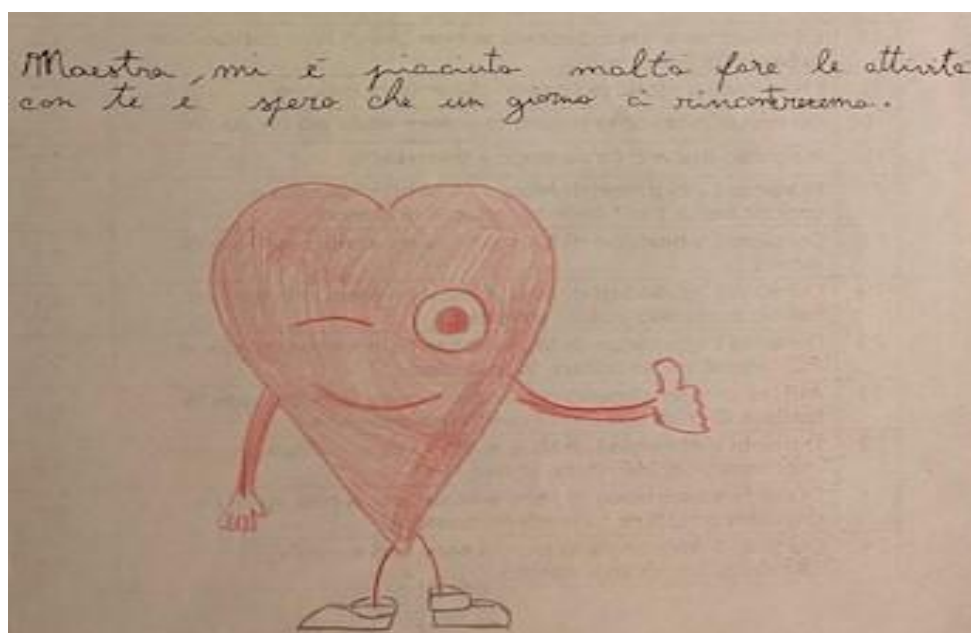 Maestra, mi è piaciuto molto fare le attività
con te e spero che un giorno ci rincontreremo.